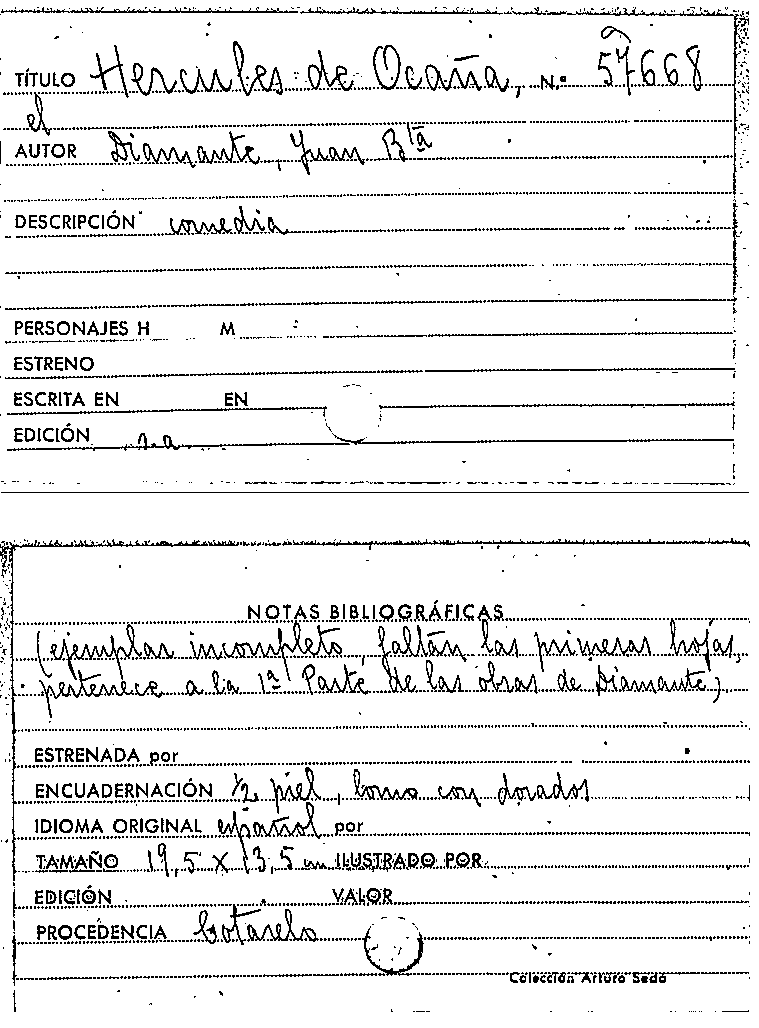 TÍTULO Hercules de Ocaña, N.º 57668
el
AUTOR Diamante, Juan Bta
DESCRIPCIÓN comedia
PERSONAJES H M
ESTRENO
ESCRITA EN EN
EDICIÓN s.a.
NOTAS BIBLIOGRÁFICAS
(ejemplar incompleto, faltan las primeras hojas,
pertenece a la 1ª Parte de las obras de Diamante)
ESTRENADA por
ENCUADERNACIÓN 1/2 piel, lomo con dorados
IDIOMA ORIGINAL español por
TAMAÑO 19,5 x 13,5 cm ILUSTRADO POR
EDICIÓN VALOR
PROCEDENCIA Cotarelo
Colección Arturo Sedó